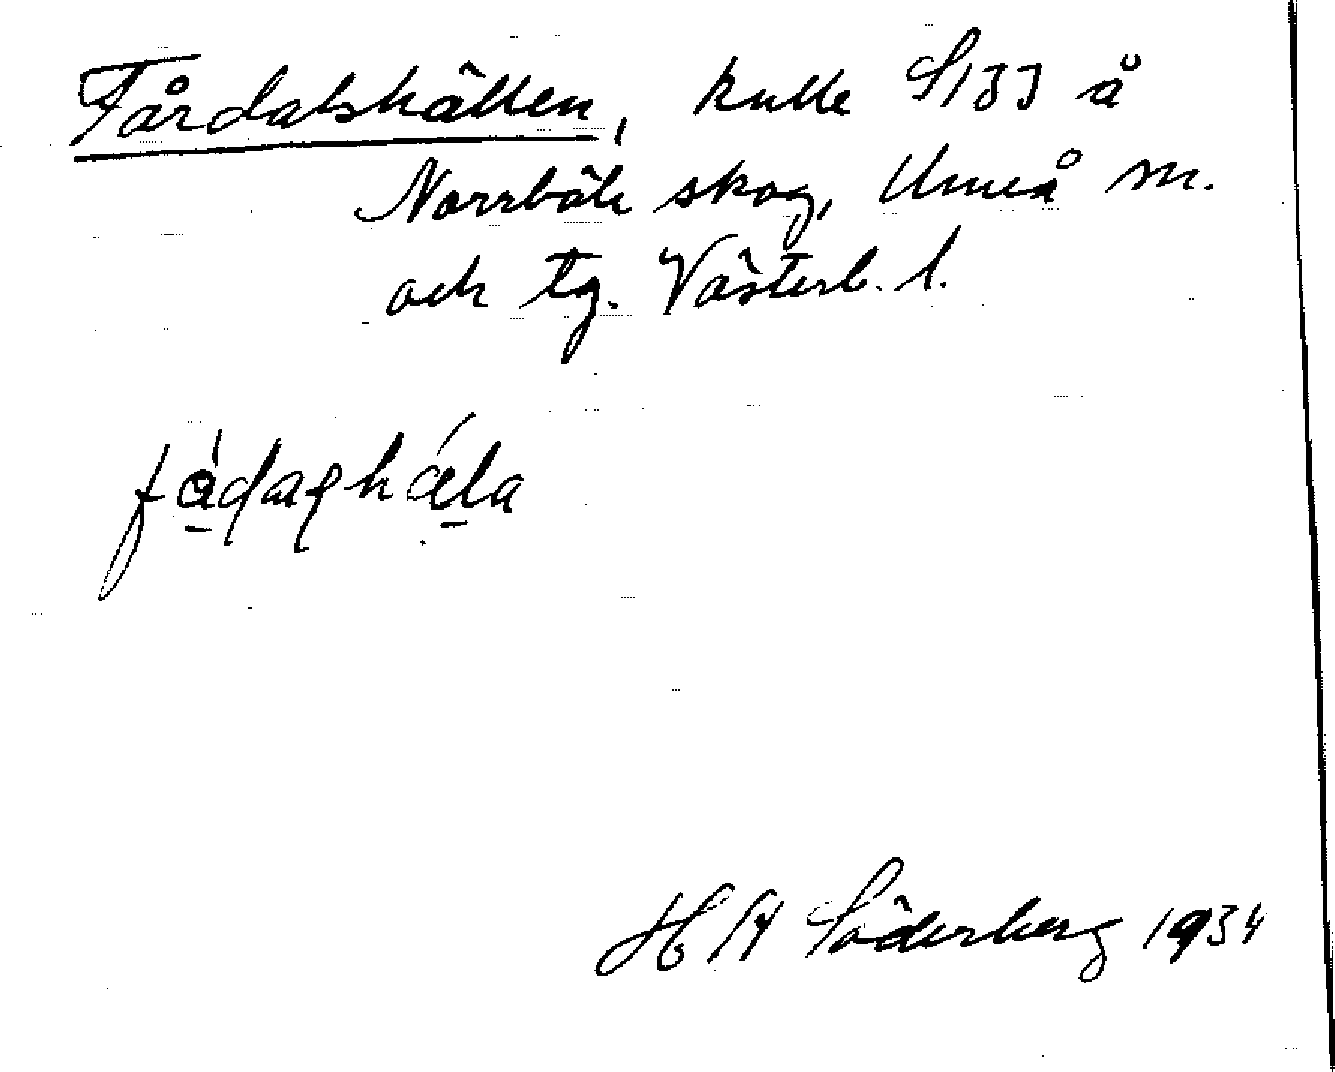 Fårdalshällen, kulle S133 å
Norrbäck skog, Umeå m.
och tg. Västerb. l.
H A Söderberg 1934